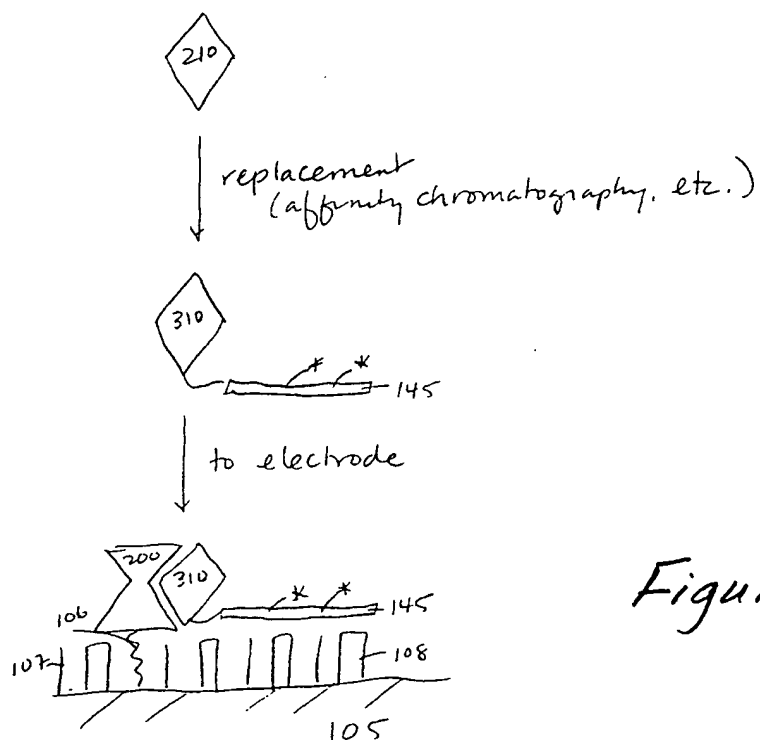 210
replacement
(affinity chromatography, etc.)
310
* *
145
to electrode
200
310
* *
145
106
107
108
105
Figu.